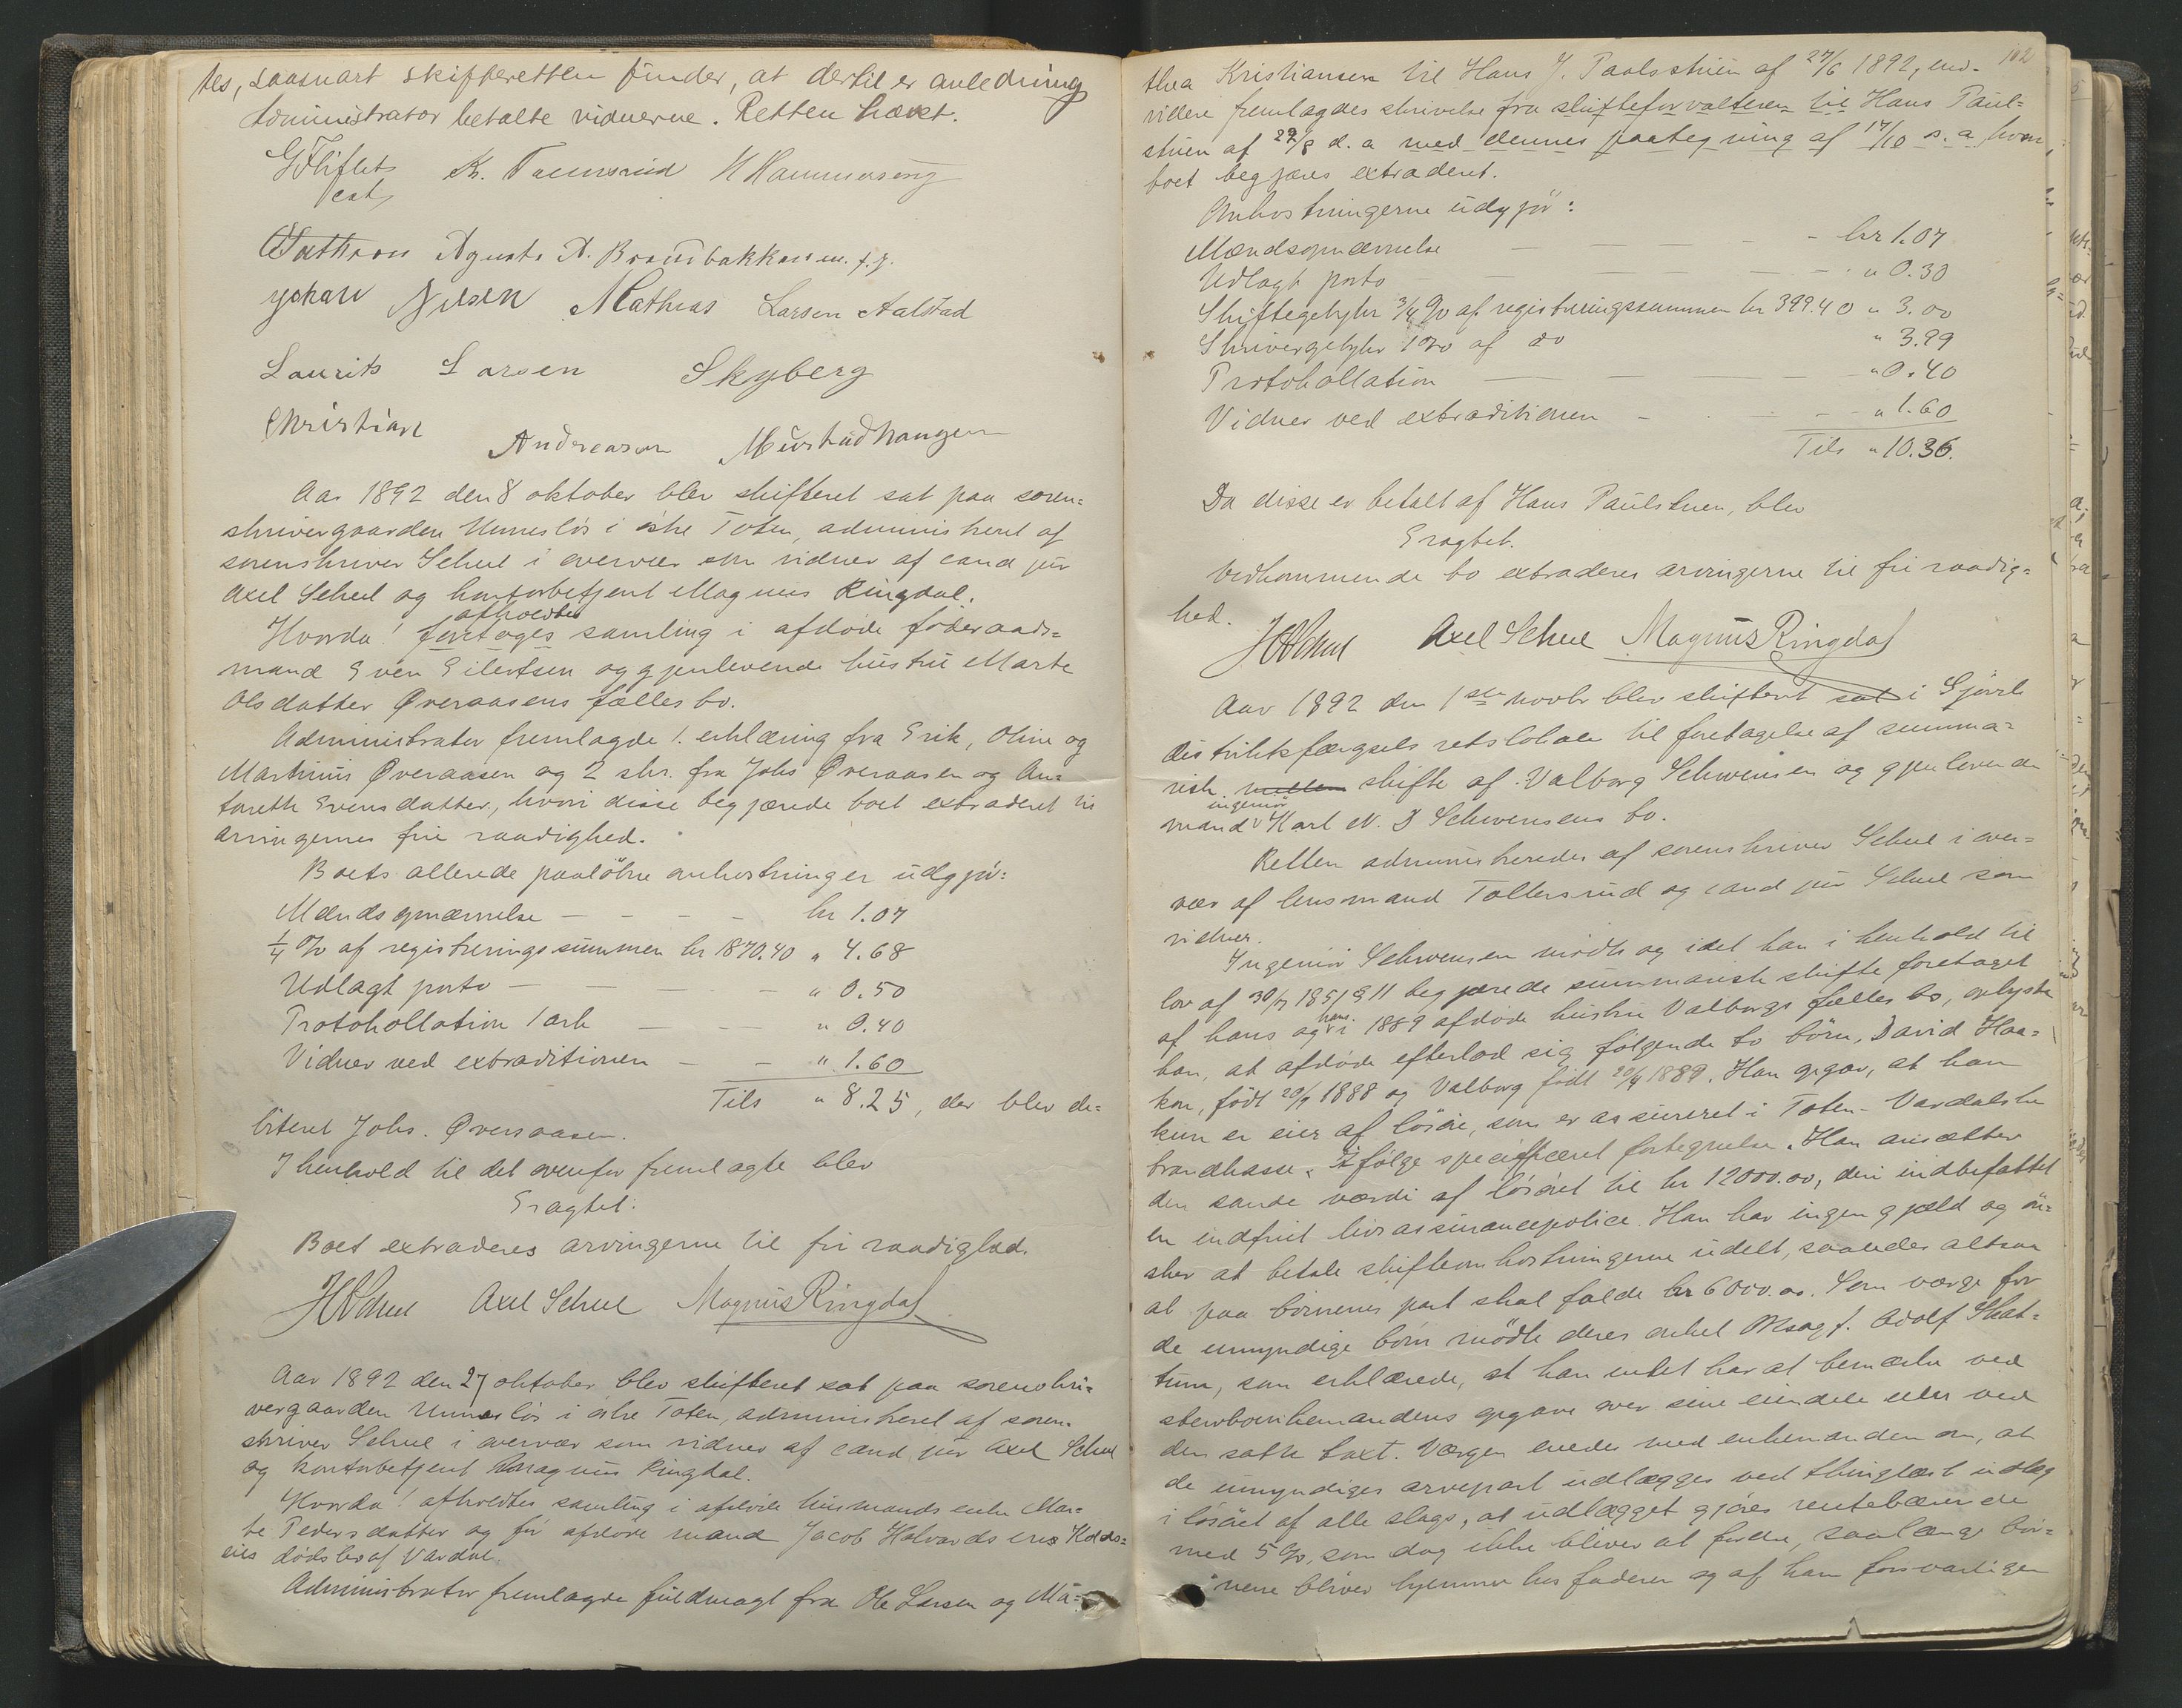 tes, saasnart skifteretten finder, at dertil er anledning
Administrator betalte vidnerne. Retten hævet.
K. Tømmerud H Hammerseng
Agneta A. Brandbakken m. f. p.
Johan Nilsen Mathias Larsen Aalstad
Laurits Larsen Skyberg
Christian Andreasen Mustadhaugen
Aar 1892 den 8 oktober blev skifteret sat paa soren=
skrivergaarden Unneslös i östre Toten, administreret af
sorenskriver Scheel i overvær som vidner af cand jur
Axel Scheel og kontorbetjent Magnus Ringdal.
afholdtes
Hvorda! foretoges samling i afdöde föderaads=
mand Even Eilertsen og gjenlevende hustru Marte
Olsdatter Øveraasens fælles bo.
Administrator fremlagde 1. erklæring fra Erik, Oline og
Martinus Øveraasen og 2 skr. fra Johs Øveraasen og An=
torette Evensdatter, hvori disse begjærede boet extraderet til
arvingernes frie raadighed.
Boets allerede paalöbne omkostninger udgjör:
Mændsopnævnelse — — — — kr 1.07
¼ % af registreringssummen kr 1870.40 " 4.68
Udlagt porto — — — — " 0.50
Protokollation 1 ark — — — " 0.40
Vidner ved extraditionen — — " 1.60
Tils " 8.25, der blev de=
biteret Johs. Øveraasen.
I henhold til det ovenfor fremlagte blev
Eragtet:
Boet extraderes arvingerne til fri raadighed.
HScheel Axel Scheel Magnus Ringdal
Aar 1892 den 27 oktober blev skifteret sat paa sorenskri=
vergaarden Unneslös i östre Toten, administreret af soren=
skriver Scheel i overvær som vidner af cand jur Axel Scheel
og kontorbetjent Magnus Ringdal.
Hvorda! afholdtes samling i afdöde husmandsenke Mar=
te Pedersdatter og för afdöde mand Jacob Halvardsens
eies dödsbo af Vardal.
Administrator fremlagde fuldmagt fra Ole Larsen og Ma=
102
thea Kristiansen til Hans J. Paulsstuen af 27/6 1892, end=
videre fremlagdes skrivelse fra skifteforvalteren til Hans Paul=
stuen af 29/8 d. a med dennes paategning af 17/10 s. a hvori
boet begjæres extraderet.
Omkostningerne udgjör:
Mændsopnævnelse — — — - kr 1.07
Udlagt porto — — — - " 0.30
Skiftegebyhr ¾ % af registreringssummen kr 399.40 " 3.00
Skrivergebyhr 1 % af do " 3.99
Protokollation — — — " 0.40
Vidner ved extraditionen - - — " 1.60
Tils " 10.36.
Da disse er betalt af Hans Paulstuen, blev
Eragtet.
Vedkommende bo extraderes arvingerne til fri raadig=
hed.
HScheel Axel Scheel Magnus Ringdal
Aar 1892 den 1ste novbr blev skifteret sat i Gjövik
distriktsfængsels retslokale til foretagelse af summa=
risk mellem skifte af Valborg Schwensen og gjenlevende
ingeniör
mand Karl N. D Schwensens bo.
Retten administreredes af sorenskriver Scheel i over=
vær af lensmand Tollersrud og cand jur Scheel som
vidner.
Ingeniör Schwensen mödte og idet han i henhold til
lov af 30/7 1851 § 11 begjærede summarisk skifte foretaget
af hans og i 1889 afdöde hustru Valborgs fælles bo, oplyste
han, at afdöde efterlod sig fölgende to börn, David Haa=
kon, födt 20/7 1888 og Valborg födt 20/4 1889. Han opgav, at han
kun er eier af lösöre, som er assureret i Toten-Vardalske
brandkasse, ifölge specificeret fortegnelse. Han ansætter
den sande værdi af lösöret til kr 12000.00, deri indbefattet
en indfriet livsassurancepolice. Han har ingen gjæld og ön=
sker at betale skifteomkostningerne udelt, saaledes altsaa
at paa börnenes part skal falde kr 6000.00. Som værge for
de umyndige börn mödte deres onkel Adolf Skat=
tum, som erklærede, at han intet har at bemærke ved
sterboenkemandens opgave over sine eiendele eller ved
den satte taxt. Værgen enedes med enkemanden om, at
de umyndiges arvepart udlægges ved thinglæst udlæg
i lösöret af alle slags, at udlægget gjöres rentebærende
med 5 %, som dog ikke bliver at fordre, saalænge bör=
nene bliver hjemme hos faderen og af ham forsvarligen